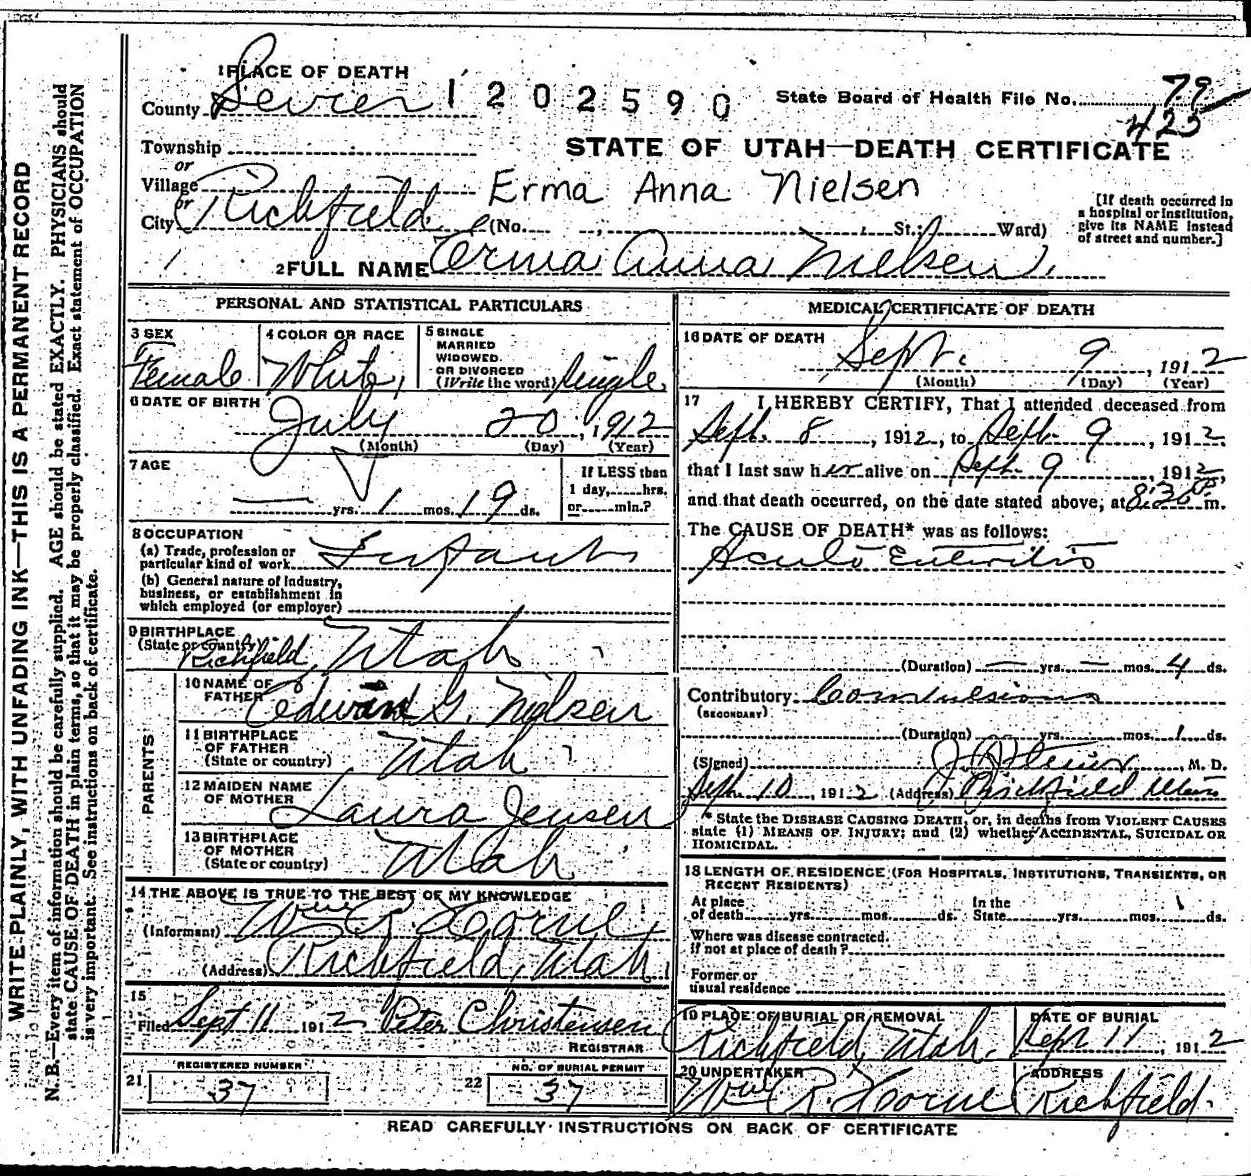 1 PLACE OF DEATH
County Sevier
1202590
State Board of Health File No. 79
425
Township
or
Village
or
City Richfield
STATE OF UTAH—DEATH CERTIFICATE
Erma Anna Nielsen
(No. , St.; Ward)
[If death occurred in
a hospital or institution,
give its NAME instead
of street and number.]
2 FULL NAME Erma Anna Nielsen
PERSONAL AND STATISTICAL PARTICULARS
3 SEX
Female
4 COLOR OR RACE
White
5 SINGLE
MARRIED
WIDOWED
OR DIVORCED
(Write the word) Single
6 DATE OF BIRTH
July 20, 1912
(Month) (Day) (Year)
7 AGE
— yrs. 1 mos. 19 ds.
If LESS than
1 day, hrs.
or min.?
8 OCCUPATION
(a) Trade, profession or
particular kind of work Infant
(b) General nature of industry,
business, or establishment in
which employed (or employer)
9 BIRTHPLACE
(State or country) Richfield, Utah
PARENTS
10 NAME OF
FATHER Edwin G. Nielsen
11 BIRTHPLACE
OF FATHER
(State or country) Utah
12 MAIDEN NAME
OF MOTHER Laura Jensen
13 BIRTHPLACE
OF MOTHER
(State or country) Utah
14 THE ABOVE IS TRUE TO THE BEST OF MY KNOWLEDGE
(Informant) Wm R. Horne
(Address) Richfield, Utah
15
Filed Sept 11 1912 Peter Christensen
REGISTRAR
REGISTERED NUMBER
21 37
NO. OF BURIAL PERMIT
22 37
MEDICAL CERTIFICATE OF DEATH
16 DATE OF DEATH
Sept. 9, 1912
(Month) (Day) (Year)
17 I HEREBY CERTIFY, That I attended deceased from
Sept. 8, 1912, to Sept. 9, 1912,
that I last saw her alive on Sept. 9, 1912,
and that death occurred, on the date stated above, at 8:30 P m.
The CAUSE OF DEATH* was as follows:
Acute Enteritis
(Duration) — yrs. — mos. 4 ds.
Contributory Convulsions
(SECONDARY)
(Duration) yrs. mos. 1 ds.
(Signed) , M. D.
Sept. 10, 1912 (Address) Richfield Utah
* State the DISEASE CAUSING DEATH, or, in deaths from VIOLENT CAUSES
state (1) MEANS OF INJURY; and (2) whether ACCIDENTAL, SUICIDAL OR
HOMICIDAL.
18 LENGTH OF RESIDENCE (FOR HOSPITALS, INSTITUTIONS, TRANSIENTS, OR
RECENT RESIDENTS)
At place
of death yrs. mos. ds.
In the
State yrs. mos. ds.
Where was disease contracted.
if not at place of death?
Former or
usual residence
19 PLACE OF BURIAL OR REMOVAL
Richfield, Utah.
DATE OF BURIAL
Sept 11, 1912
20 UNDERTAKER
Wm R. Horne
ADDRESS
Richfield.
READ CAREFULLY INSTRUCTIONS ON BACK OF CERTIFICATE
WRITE PLAINLY, WITH UNFADING INK—THIS IS A PERMANENT RECORD
N. B.—Every item of information should be carefully supplied. AGE should be stated EXACTLY. PHYSICIANS should
state CAUSE OF DEATH in plain terms, so that it may be properly classified. Exact statement of OCCUPATION
is very important. See instructions on back of certificate.